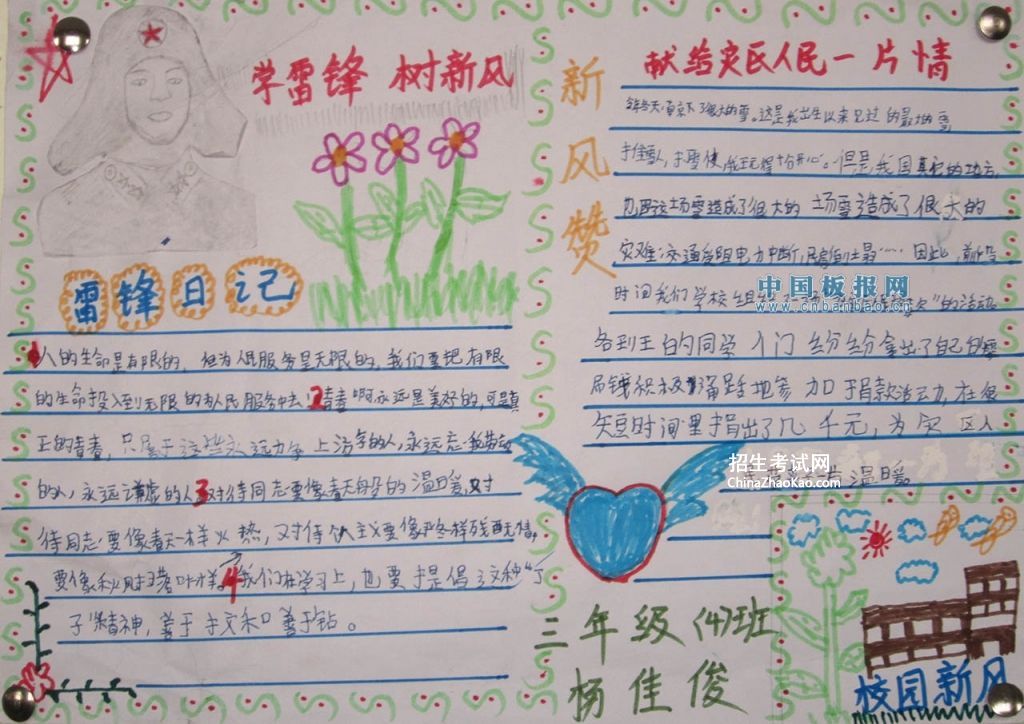 学雷锋 树新风
雷锋日记
1人的生命是有限的，但为人民服务是无限的，我们要把有限
的生命投入到无限的为人民服务中去 2青春啊永远是美好的，可是真
正的青春，只属于这些永远力争上游的人，永远忘我劳动
的人，永远谦虚的人 3对待同志要像春天般的温暖，对
待同志要像春天一样火热，对待个人主义要像严冬一样残酷无情，
要像秋风扫落叶一样。4我们在学习上，也要提倡这种“钉
子”精神，善于挤和善于钻。
新风赞
献给灾区人民一片情
下了很大的雪。这是我出生以来见过的最大的雪
堆雪人，打雪仗，我玩得十分开心。但是我国其它的地方，
也因这场雪造成了很大的 场雪造成了很大的
灾难：交通受阻电力中断，民房倒塌…… 因此，前段
时间我们学校组 的活动
各班的同学们纷纷拿出了自己的零
用钱积极踊跃地参加捐款活动，在很
短时间里捐出了几千元，为灾区人
温暖
中国板报网
www.cnbanbao.cn
招生考试网
ChinaZhaoKao.com
三年级（4）班
杨佳俊
校园新风